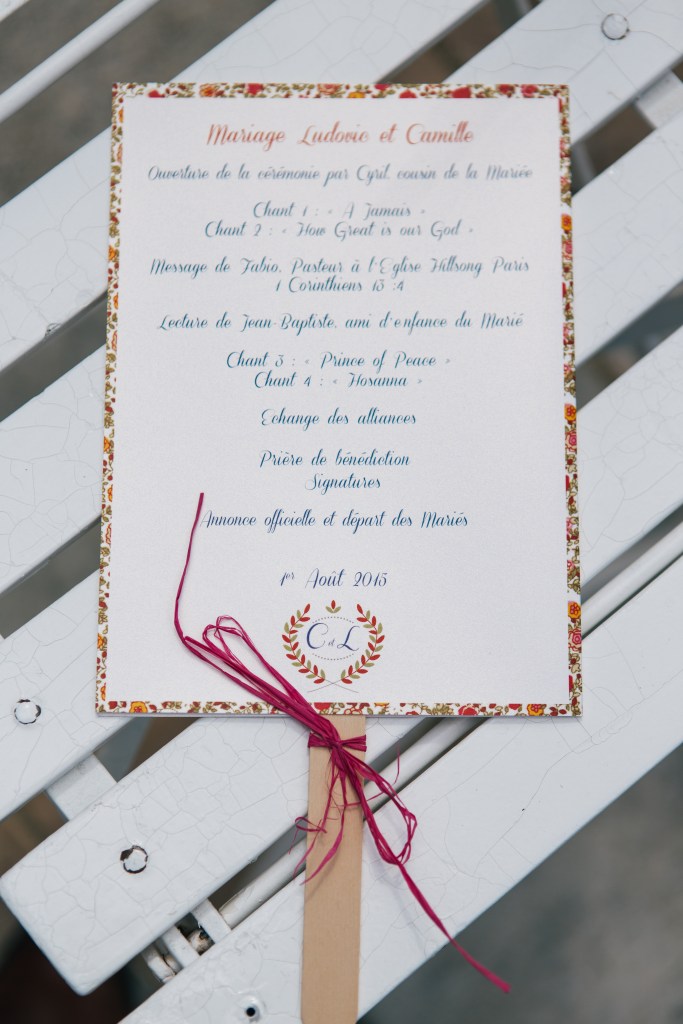 Mariage Ludovic et Camille
Ouverture de la cérémonie par Cyril, cousin de la Mariée
Chant 1 : « A Jamais »
Chant 2 : « How Great is our God »
Message de Fabio, Pasteur à l'Eglise Hillsong Paris
1 Corinthiens 13 :4
Lecture de Jean-Baptiste, ami d'enfance du Marié
Chant 3 : « Prince of Peace »
Chant 4 : « Hosanna »
Echange des alliances
Prière de bénédiction
Signatures
Annonce officielle et départ des Mariés
1er Août 2015
C et L